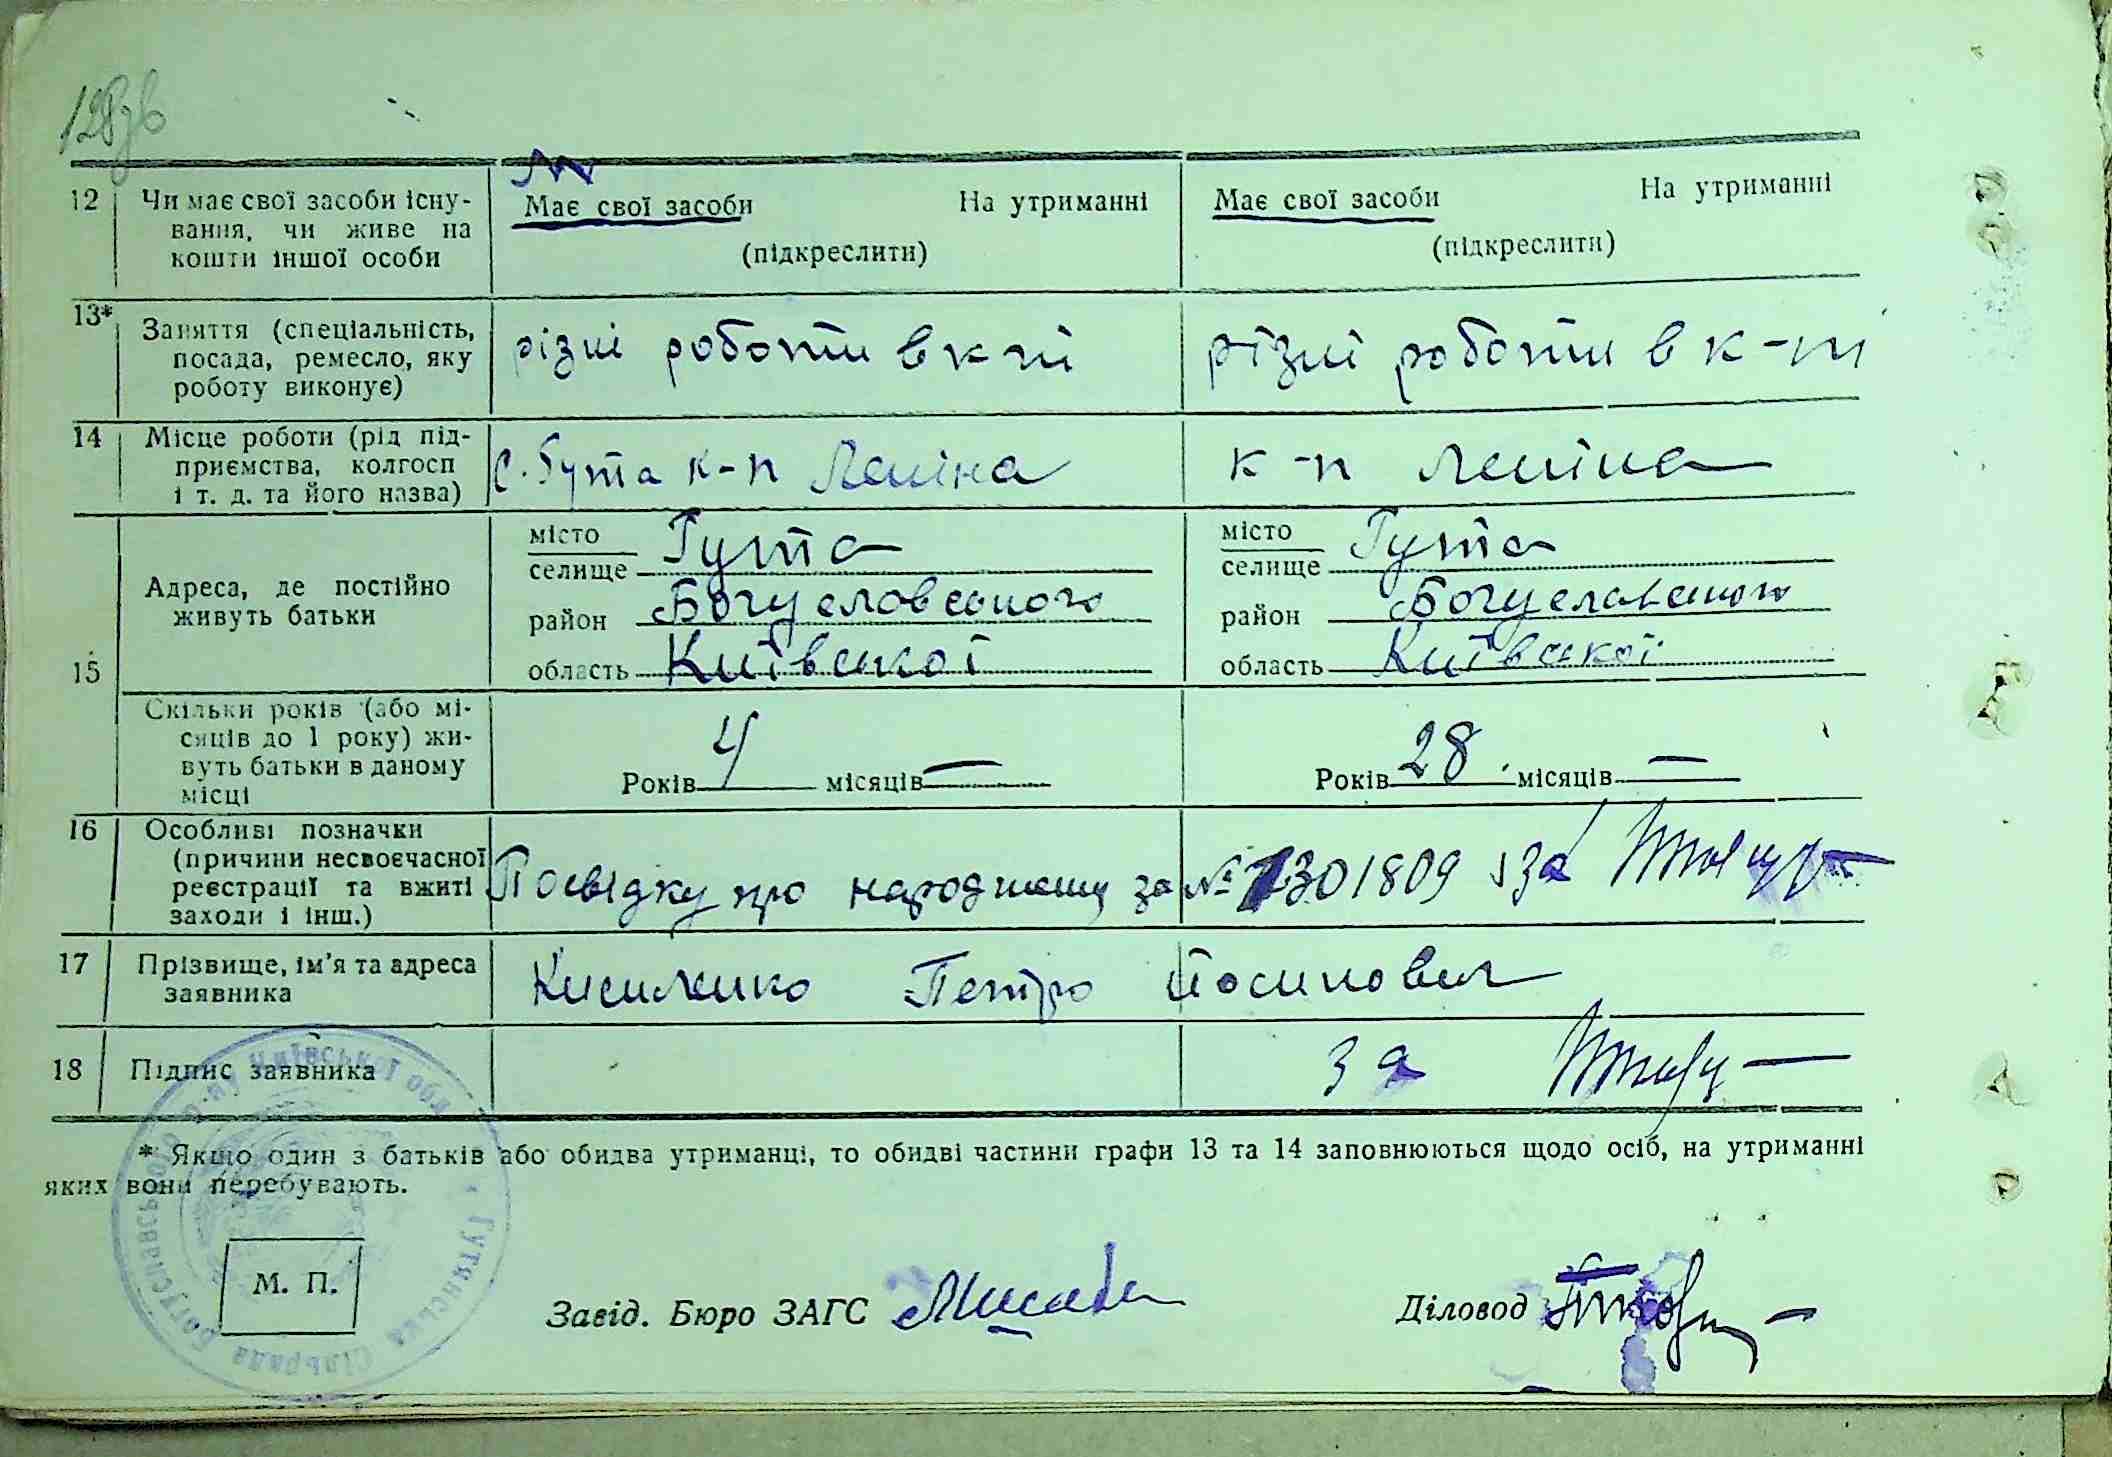 128зв
12 Чи має свої засоби існу-
вання, чи живе на
кошти іншої особи
Має свої засоби На утриманні
(підкреслити)
Має свої засоби На утриманні
(підкреслити)
13* Заняття (спеціальність,
посада, ремесло, яку
роботу виконує)
різні роботи в к-пі
різні роботи в к-пі
14 Місце роботи (рід під-
приємства, колгосп
і т. д. та його назва)
с. Гута к-п Леніна
к-п Леніна
15 Адреса, де постійно
живуть батьки
місто
селище Гута
район Богуславського
область Київської
місто
селище Гута
район Богуславського
область Київської
Скільки років (або мі-
сяців до 1 року) жи-
вуть батьки в даному
місці
Років 4 місяців —
Років 28 місяців —
16 Особливі позначки
(причини несвоєчасної
реєстрації та вжиті
заходи і інш.)
Посвідку про народження за № 1301809 за
17 Прізвище, ім'я та адреса
заявника
Петро Йосипович
18 Підпис заявника
за
* Якщо один з батьків або обидва утриманці, то обидві частини графи 13 та 14 заповнюються щодо осіб, на утриманні
яких вони перебувають.
Гутянська Сільрада Богуславського р-ну Київської обл.
М. П.
Завід. Бюро ЗАГС
Діловод